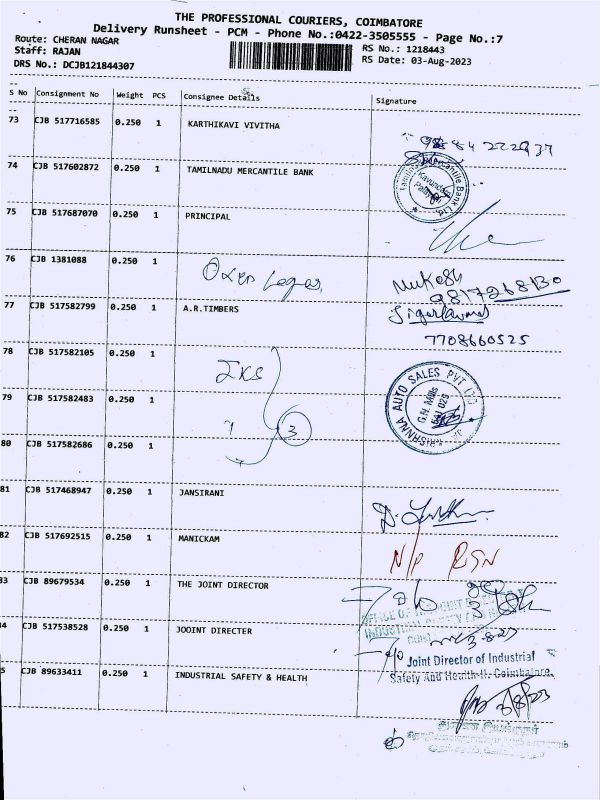 THE PROFESSIONAL COURIERS, COIMBATORE
Delivery Runsheet - PCM - Phone No.:0422-3505555 - Page No.:7
Route: CHERAN NAGAR
RS No.: 1218443
Staff: RAJAN
RS Date: 03-Aug-2023
DRS No.: DCJB121844307
S No Consignment No Weight PCS Consignee Details Signature
73 CJB 517716585 0.250 1 KARTHIKAVI VIVITHA
74 CJB 517602872 0.250 1 TAMILNADU MERCANTILE BANK
75 CJB 517687070 0.250 1 PRINCIPAL
76 CJB 1381088 0.250 1 Mukesh
77 CJB 517582799 0.250 1 A.R.TIMBERS
7708660525
78 CJB 517582105 0.250 1
79 CJB 517582483 0.250 1 3
KRISHNA AUTO SALES PVT LTD
G.N. Mills
641 029
80 CJB 517582686 0.250 1
81 CJB 517468947 0.250 1 JANSIRANI
82 CJB 517692515 0.250 1 MANICKAM N/P RSN
83 CJB 89679534 0.250 1 THE JOINT DIRECTOR
4 CJB 517538528 0.250 1 JOOINT DIRECTER
Joint Director of Industrial
Safety And Health-II, Coimbatore.
5 CJB 89633411 0.250 1 INDUSTRIAL SAFETY & HEALTH